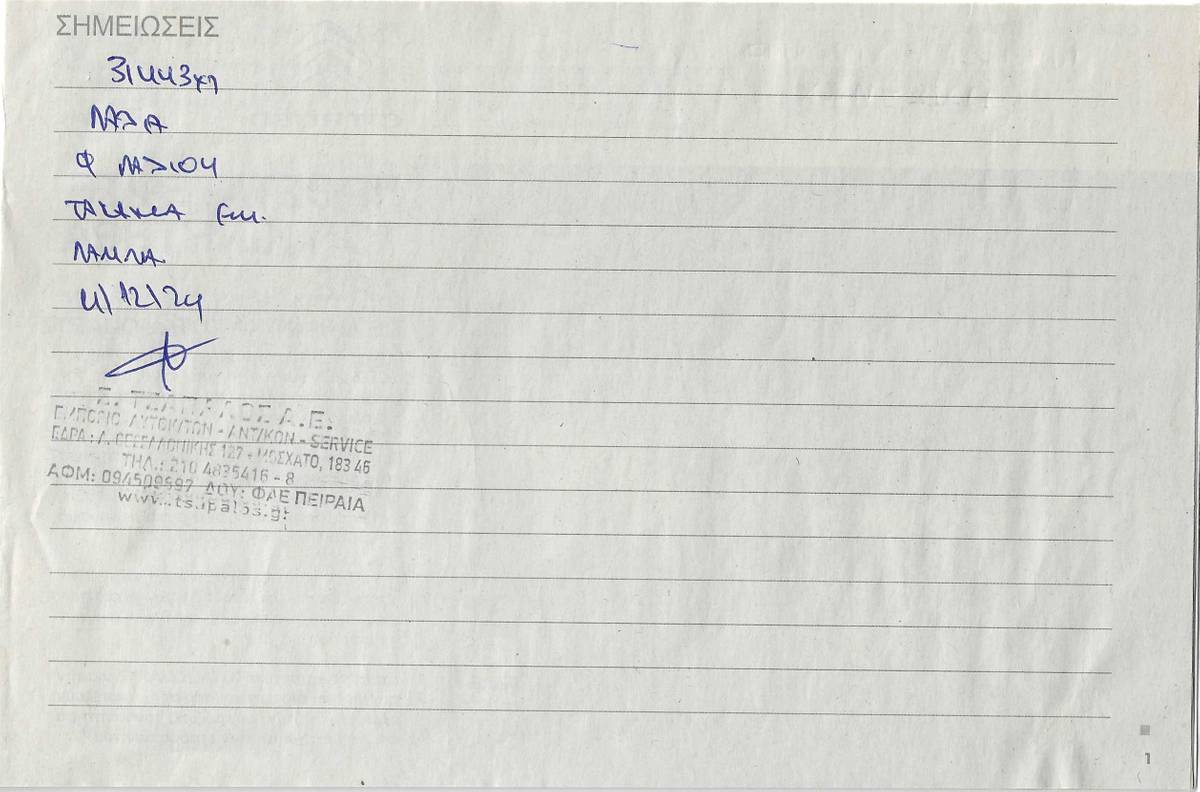 ΣΗΜΕΙΩΣΕΙΣ
31443χλ
ΛΑΔΙΑ
Φ ΛΑΔΙΟΥ
ΤΑΚΑΚΙΑ ΕΜ.
ΛΑΜΠΑ
4/12/24
Σ. ΤΣΑΠΑΛΟΣ Α.Ε.
ΕΜΠΟΡΙΟ ΑΥΤΟΚ/ΤΩΝ - ΑΝΤ/ΚΩΝ - SERVICE
ΕΔΡΑ: Λ. ΘΕΣΣΑΛΟΝΙΚΗΣ 127 - ΜΟΣΧΑΤΟ, 183 46
ΤΗΛ.: 210 4835416 - 8
ΑΦΜ: 094509697 ΔΟΥ: ΦΑΕ ΠΕΙΡΑΙΑ
1